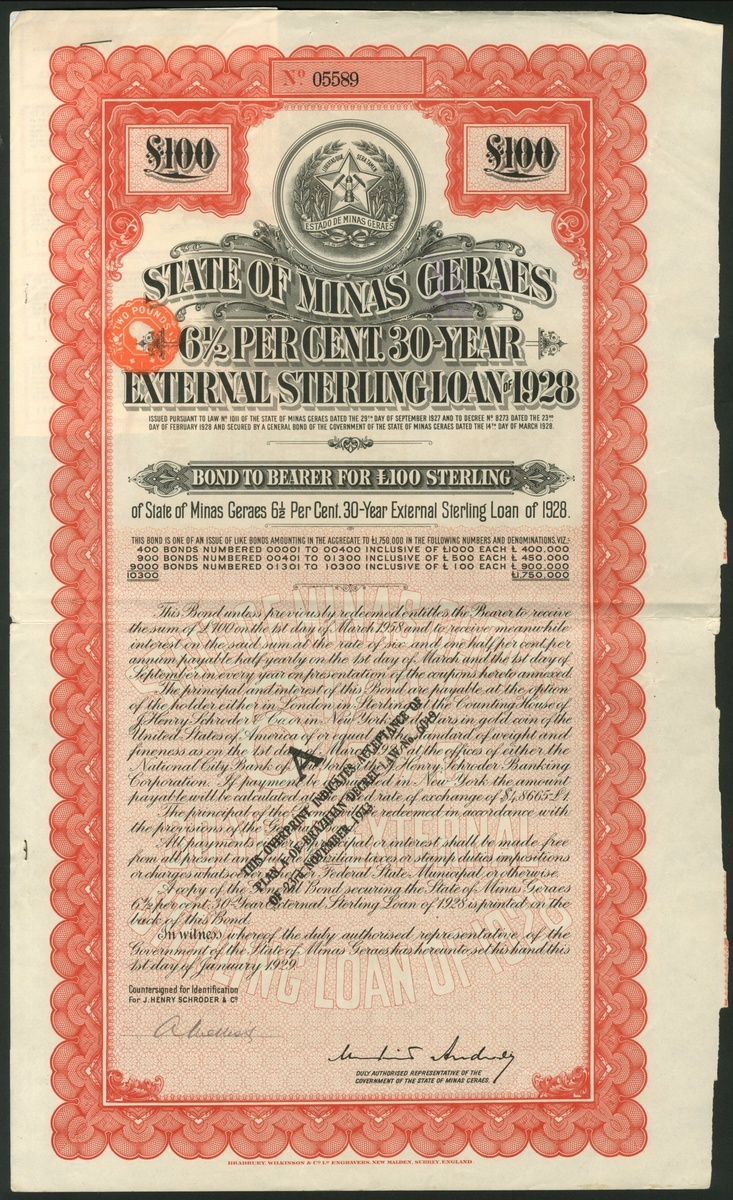 Nº 05589
£100
£100
LIBERTAS QUÆ SERA TAMEN
ESTADO DE MINAS GERAES
STATE OF MINAS GERAES
TWO POUNDS
6½ PER CENT. 30-YEAR
EXTERNAL STERLING LOAN OF 1928
ISSUED PURSUANT TO LAW Nº 1011 OF THE STATE OF MINAS GERAES DATED THE 29TH DAY OF SEPTEMBER 1927 AND TO DECREE Nº 8273 DATED THE 23RD
DAY OF FEBRUARY 1928 AND SECURED BY A GENERAL BOND OF THE GOVERNMENT OF THE STATE OF MINAS GERAES DATED THE 14TH DAY OF MARCH 1928.
BOND TO BEARER FOR £100 STERLING
of State of Minas Geraes 6½ Per Cent. 30-Year External Sterling Loan of 1928.
THIS BOND IS ONE OF AN ISSUE OF LIKE BONDS AMOUNTING IN THE AGGREGATE TO £1,750,000 IN THE FOLLOWING NUMBERS AND DENOMINATIONS, VIZ:
400 BONDS NUMBERED 00001 TO 00400 INCLUSIVE OF £1000 EACH £ 400.000
900 BONDS NUMBERED 00401 TO 01300 INCLUSIVE OF £ 500 EACH £ 450.000
9000 BONDS NUMBERED 01301 TO 10300 INCLUSIVE OF £ 100 EACH £ 900.000
10300 £1,750.000
This Bond unless previously redeemed entitles the Bearer to receive
the sum of £100 on the 1st day of March 1958 and to receive meanwhile
interest on the said sum at the rate of six and one half per cent, per
annum payable half yearly on the 1st day of March and the 1st day of
September in every year on presentation of the coupons hereto annexed.
The principal and interest of this Bond are payable at the option
of the holder either in London in Sterling at the Counting House of
J. Henry Schroder & Co. or in New York in dollars in gold coin of the
United States of America of or equal to the standard of weight and
fineness as on the 1st day of March 1928 at the offices of either the
National City Bank of New York or J. Henry Schroder Banking
Corporation. If payment be demanded in New York the amount
payable will be calculated at the fixed rate of exchange of $4,8665=£1.
The principal of the Bond will be redeemed in accordance with
the provisions of the General Bond.
All payments either of principal or interest shall be made free
from all present and future Brazilian taxes or stamp duties impositions
or charges whatsoever whether Federal State Municipal or otherwise.
A copy of the General Bond securing the State of Minas Geraes
6½ per cent. 30-Year External Sterling Loan of 1928 is printed on the
back of this Bond.
In witness whereof the duly authorised representative of the
Government of the State of Minas Geraes has hereunto set his hand this
1st day of January 1929.
A
THIS OVERPRINT INDICATES ACCEPTANCE OF
PLAN A OF BRAZILIAN DECREE LAW No. 6019
OF 23rd NOVEMBER, 1943
Countersigned for Identification
For J. HENRY SCHRODER & Cº
DULY AUTHORISED REPRESENTATIVE OF THE
GOVERNMENT OF THE STATE OF MINAS GERAES.
BRADBURY, WILKINSON & Cº Lº ENGRAVERS, NEW MALDEN, SURREY, ENGLAND